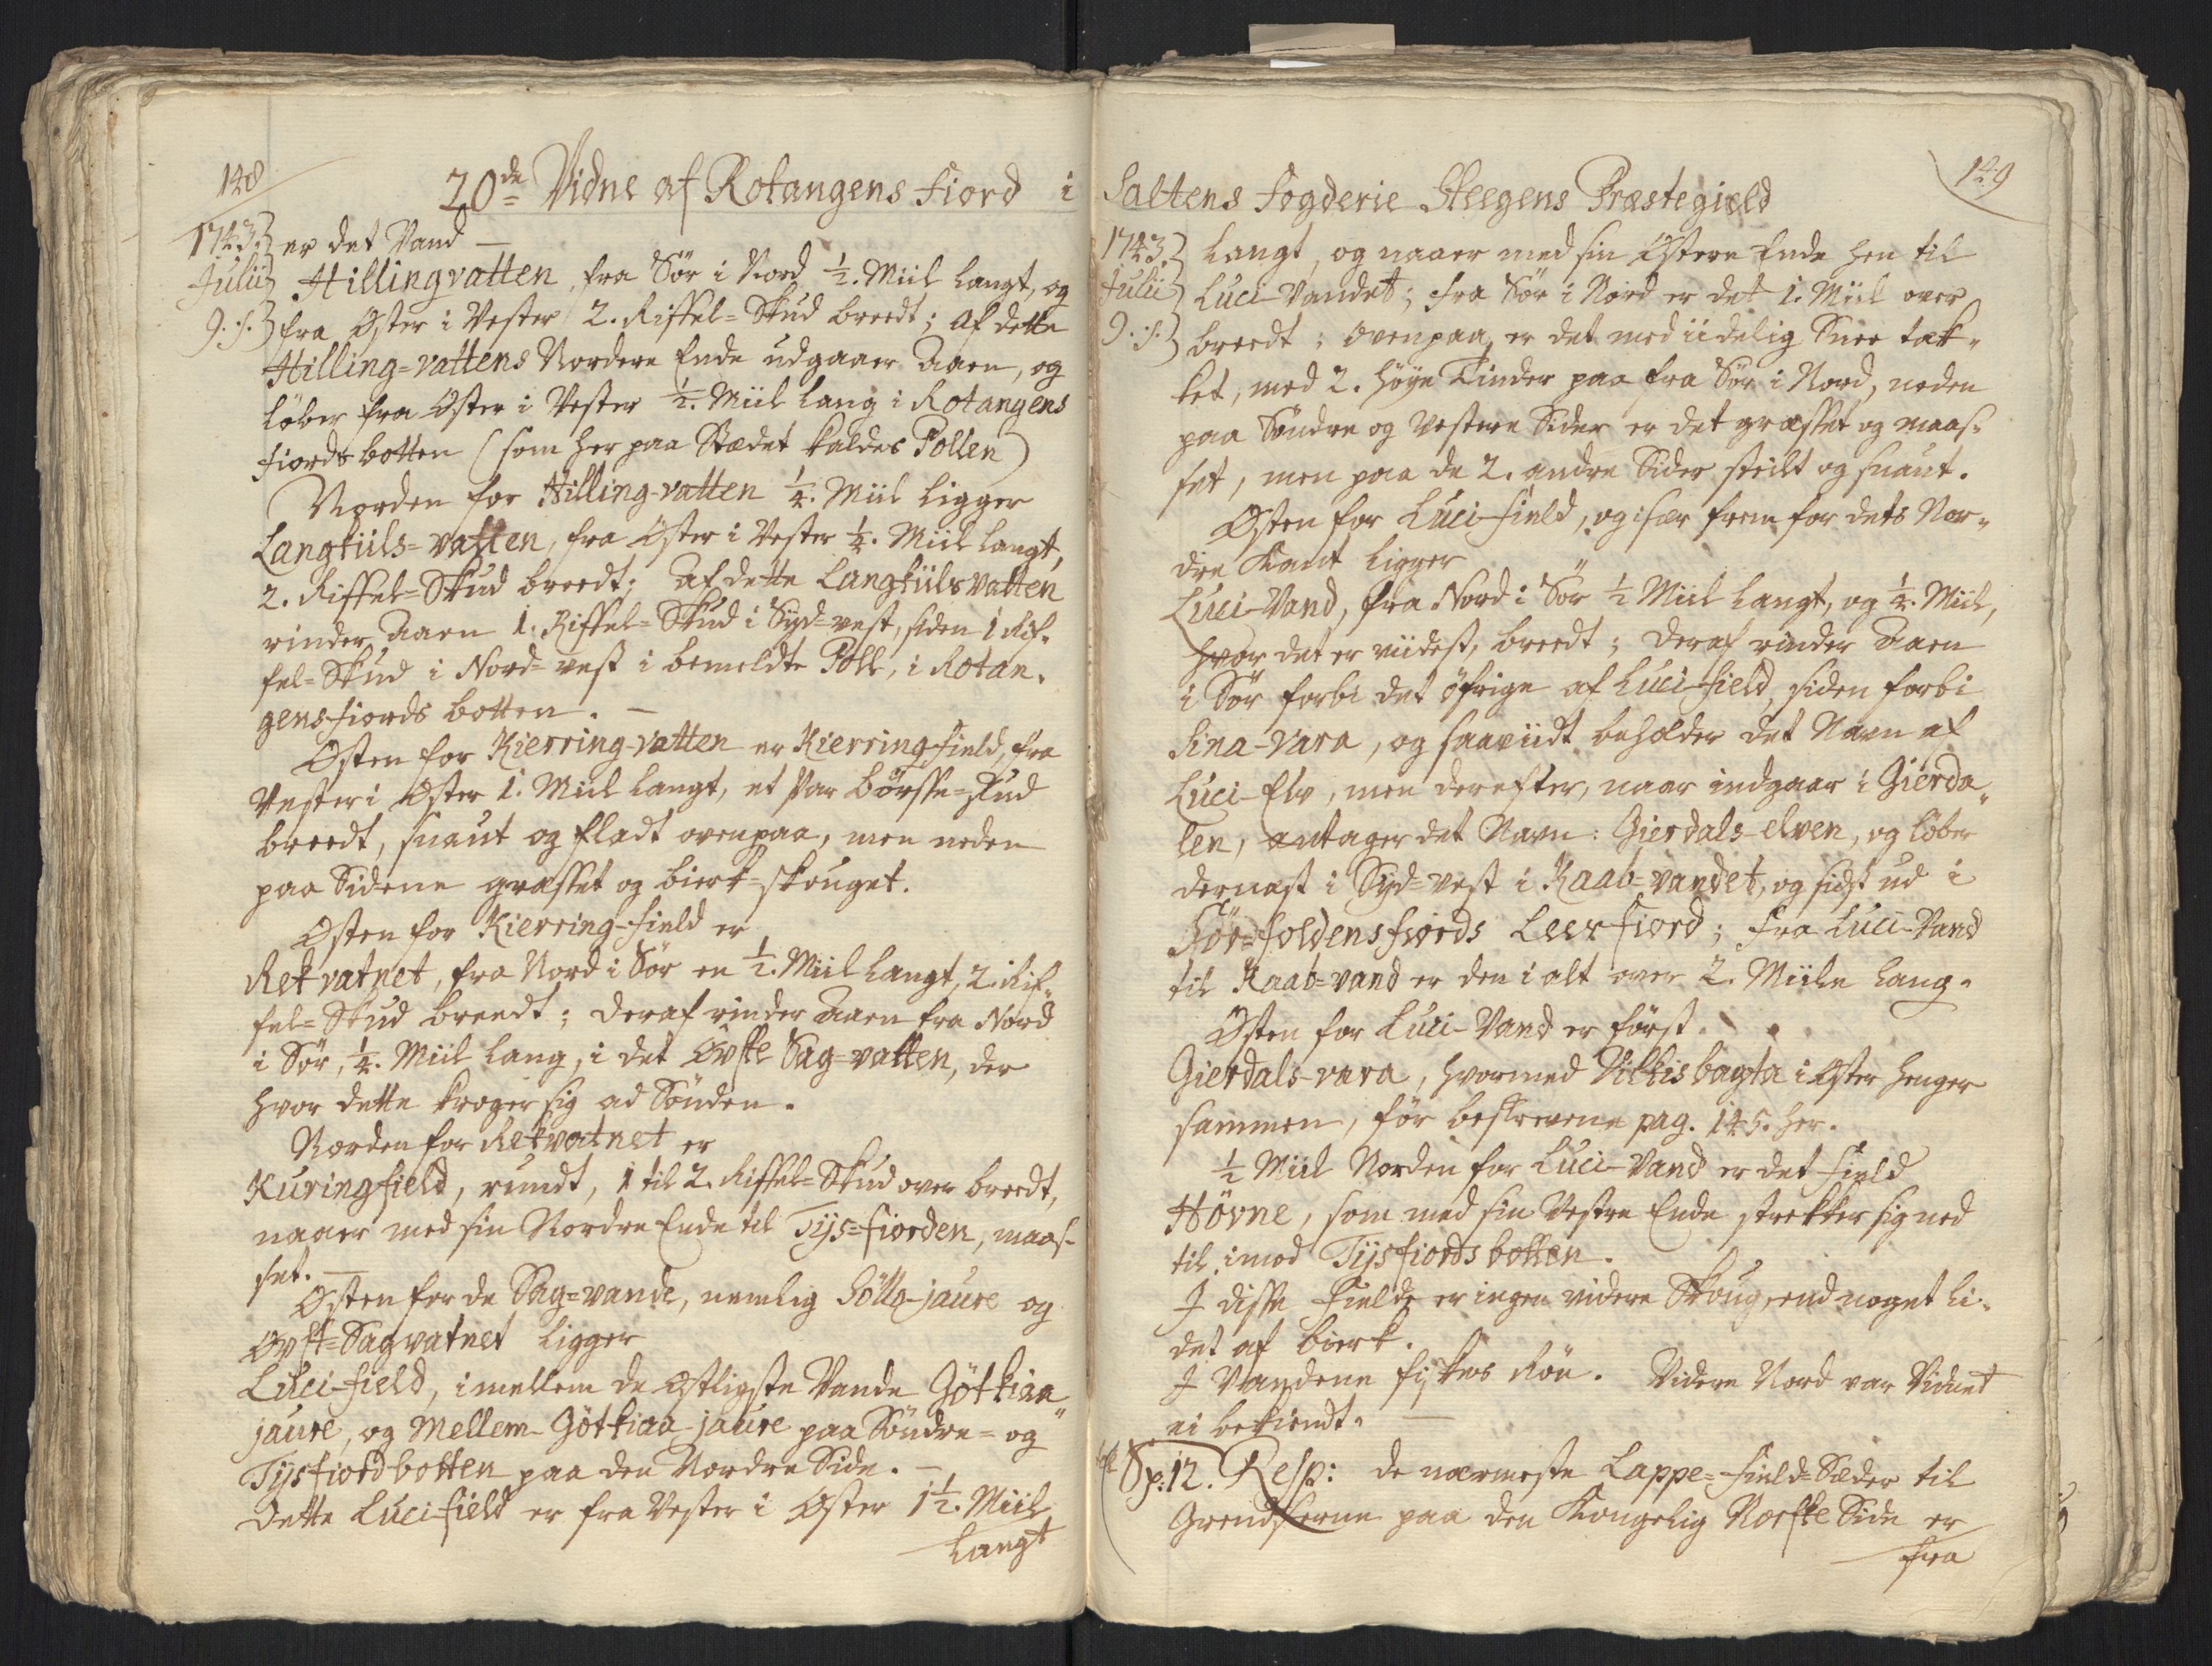 148
20de Vidne af Rotangens Fiord i
1743. er det Vand —
Julii Hillingvatten, fra Sør i Nord ½. Miil langt, og
9. s. fra Øster i Vester 2. Riffel=Skud breedt; Af dette
Hilling=vattens Nordere Ende udgaaer Aaen, og
løber fra Øster i Vester ½. Miil lang i Rotangens
fiords botten (som her paa Stædet kaldes Pollen)
Norden for Hilling-vatten ¼. Miil ligger
Langtiils=vatten, fra Øster i Vester ¼. Miil langt,
2. Riffel=Skud breedt; Af dette Langtiilsvatten
rinder Aaen 1. Riffel=Skud i Syd=vest, siden 1 Rif-
fel=Skud i Nord=vest i bemeldte Poll, i Rotan-
gensfiords botten. —
Østen for Kierring-vatten er Kierringfield, fra
Vester i Øster 1. Miil langt, et Par Børsse=skud
breedt, snaut og fladt ovenpaa, men neden
paa Sidene græsset og bierk=skouget.
Østen for Kierring-field er
Retvatnet, fra Nord i Sør en ½. Miil langt, 2. Rif-
fel=Skud breedt; deraf rinder Aaen fra Nord
i Sør, ¼. Miil lang, i det Øvste Sag=vatten, der
hvor dette kroger sig ad Sønden.
Norden for Retvatnet er
Kuringfield, rundt, 1 til 2. Riffel=Skud over breedt,
naaer med sin Nordre Ende til Tys=fiorden, maas-
set. —
Østen for de Sag=vande, nemlig Gollo-jaure og
Øvst=Sagvatnet ligger
Luci-field, imellem de østligste Vande Götkiaa-
jaure, og Mellem-Götkiaa-jaure paa Søndre= og
Tysfiordbotten paa den Nordre Side. —
Dette Luci-field er fra Vester i Øster 1½. Miil
langt
149
Saltens Fogderie Steegens Præstegield
1743. langt, og naaer med sin Østere Ende hen til
Julii Luci-Vandet; fra Sør i Nord er det 1. Miil over
9. s. breedt; ovenpaa er det med iidelig Snee tæk-
ket, med 2. høye Tinder paa fra Sør i Nord, neden
paa Søndre og Vestere Sider er det græsset og maas-
set, men paa de 2. andre Sider steilt og snaut.
Østen for Luci-field, og især frem for dets Nor-
dre Kant ligger
Luci-Vand, fra Nord i Sør ½ Miil langt, og ¼. Miil,
hvor det er viidest, breedt; deraf rinder Aaen
i Sør forbi det øfrige af Luci-field, siden forbi
Sina-vara, og saaviidt beholder det Navn af
Luci-Elv, men derefter, naar indgaar i Gierda-
len, antager det Navn: Gierdals-elven, og løber
dernæst i Syd=vest i Kaab=vandet, og sidst ud i
Sør=foldensfiords Leerfiord; fra Luci-Vand
til Kaab=vand er den i alt over 2. Miile lang.
Østen for Luci-Vand er først.
Gierdals-vara, hvormed Vilkisbagta i Øster henger
sammen, før beskrevene pag. 145. her.
½ Miil Norden for Luci-Vand er det Field
Høvne, som med sin Vestre Ende strekker sig ned
til imod Tysfiords botten.
I disse Fielde er ingen videre Skoug, end noget li-
det af bierk.
I Vandene fiskes Røe. Videre Nord var Vidnet
ei bekiendt. —
Sp: 12. Resp: de nærmeste Lappe=Field=Sæder til
Grendserne paa den Kongelig Norske Side er
fra